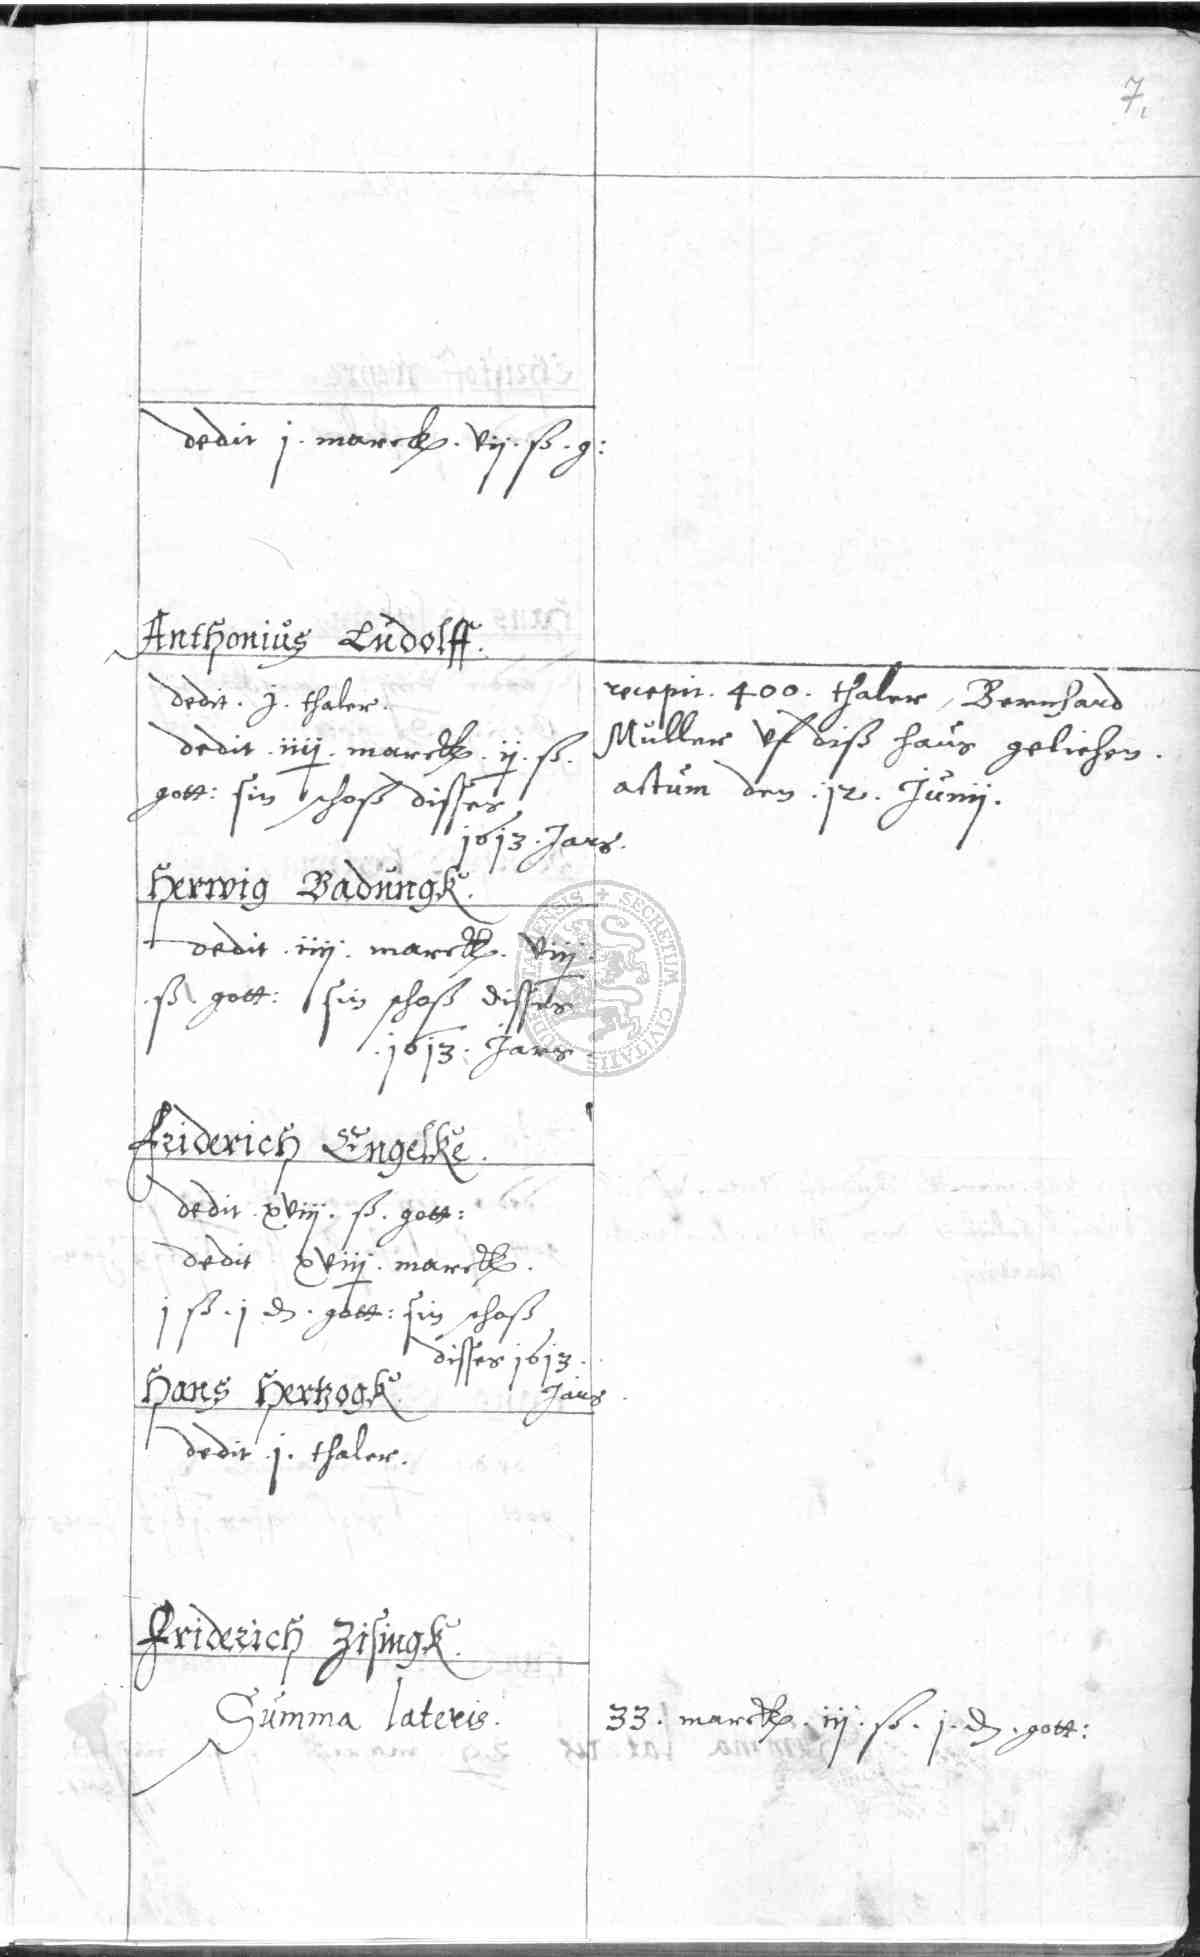 7.
dedit j. marck. vij. ß. g:
Anthonius Ludolff.
dedit. j. thaler.
dedit .iiij. marck. ij. ß.
gott: sin schoß disses
1613. Jars.
recepit. 400. thaler, Bernhard
Muller vf diß haus geliehen.
actum den .12. Junij.
Herwig Badungk.
dedit .iiij. marck. viij.
.ß. gott: sin schoß disses
.1613. Jars.
Friderich Engelke.
dedit .xviij. ß. gott:
dedit xviij. marck.
j ß. j d. gott: sin schoß
disses 1613.
Jars.
Hans Hertzogk.
dedit .j. thaler.
Friderich Zisingk.
Summa lateris.
33. marck. iij. ß. j. d. gott:
SECRETUM CIVITATIS